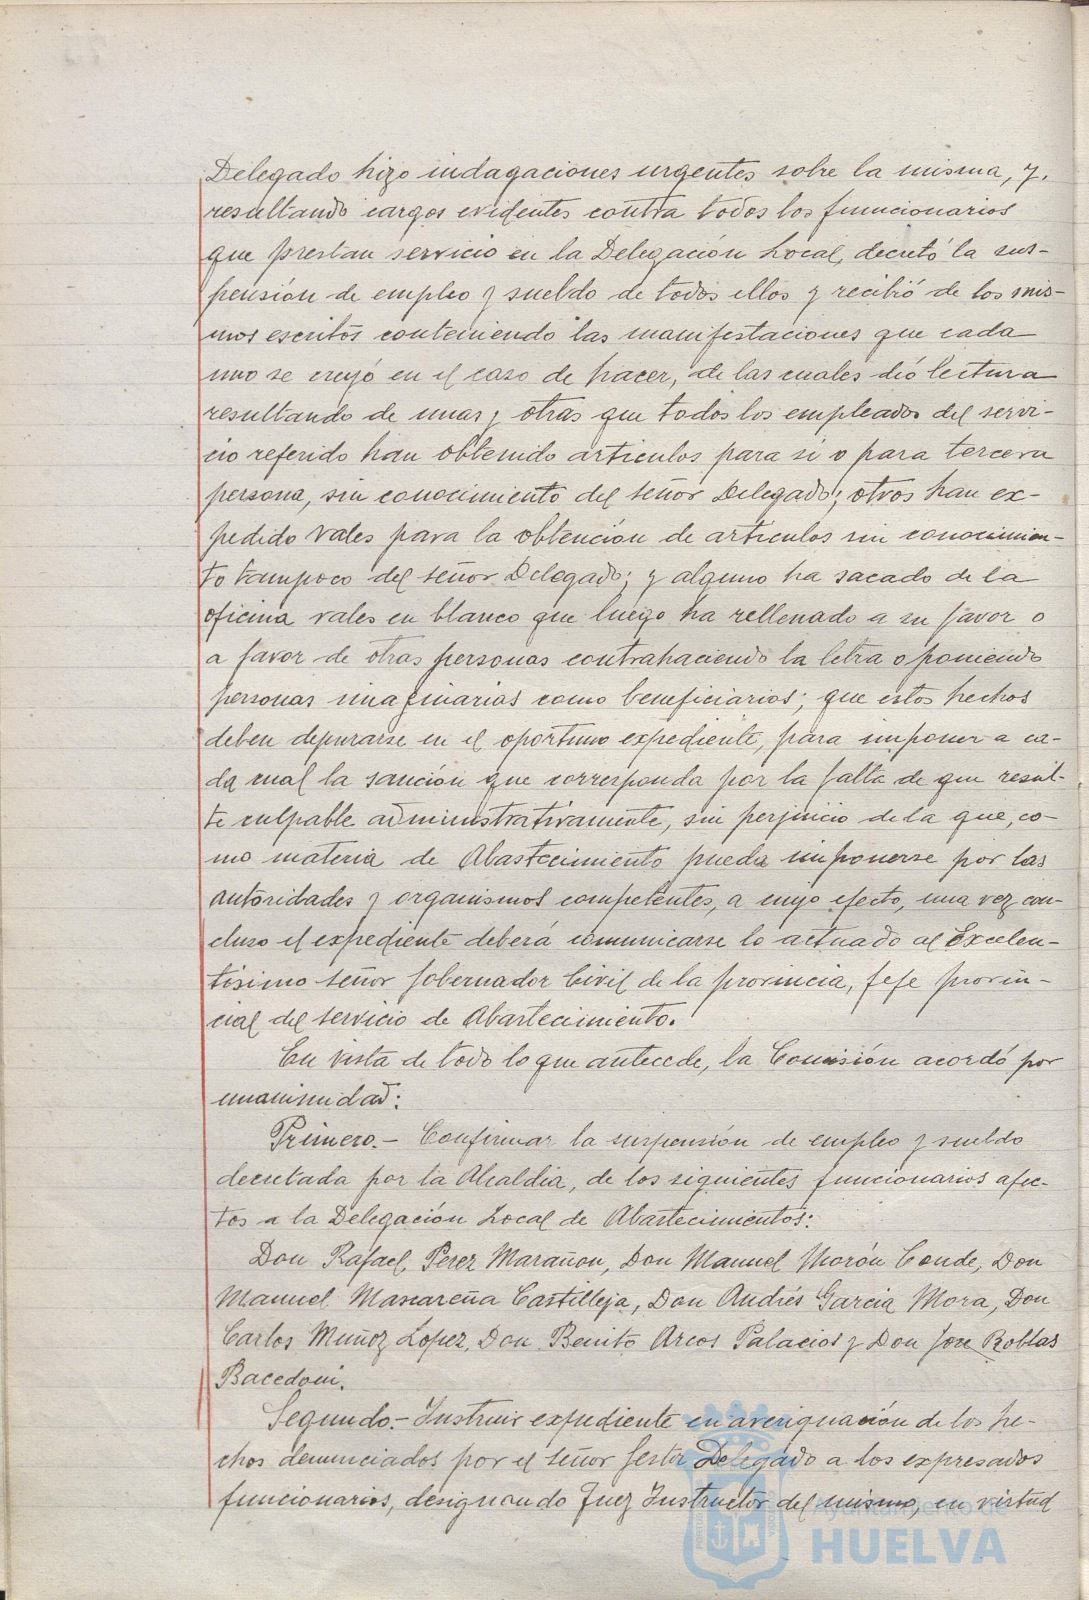 Delegado hizo indagaciones urgentes sobre la misma, y,
resultando cargos evidentes contra todos los funcionarios
que prestan servicio en la Delegación Local, decretó la sus-
pensión de empleo y sueldo de todos ellos y recibió de los mis-
mos escritos conteniendo las manifestaciones que cada
uno se creyó en el caso de hacer, de las cuales dió lectura
resultando de unas y otras que todos los empleados del servi-
cio referido han obtenido articulos para si o para tercera
persona, sin conocimiento del señor Delegado; otros han ex-
pedido vales para la obtención de articulos sin conocimien-
to tampoco del señor Delegado; y alguno ha sacado de la
oficina vales en blanco que luego ha rellenado a su favor o
a favor de otras personas contrahaciendo la letra o poniendo
personas imaginarias como beneficiarios; que estos hechos
deben depurarse en el oportuno expediente, para imponer a ca-
da cual la sanción que corresponda por la falta de que resul-
te culpable administrativamente, sin perjuicio de la que, co-
mo materia de Abastecimiento pueda imponerse por las
autoridades y organismos competentes, a cuyo efecto, una vez con-
cluso el expediente deberá comunicarse lo actuado al Excelen-
tísimo señor Gobernador Civil de la provincia, Jefe provin-
cial del servicio de Abastecimiento.
En vista de todo lo que antecede, la Comisión acordó por
unanimidad:
Primero.- Confirmar la suspensión de empleo y sueldo
decretada por la Alcaldia, de los siguientes funcionarios afec-
tos a la Delegación Local de Abastecimientos:
Don Rafael Perez Marañon, Don Manuel Morón Conde, Don
Manuel Mascareña Castilleja, Don Andrés Garcia Mora, Don
Carlos Muñoz Lopez, Don Benito Arcos Palacios y Don Jose Roblas
Bacedoni.
Segundo.- Instruir expediente en averiguación de los he-
chos denunciados por el señor Gestor Delegado a los expresados
funcionarios, designando Juez Instructor del mismo, en virtud
Ayuntamiento de
HUELVA